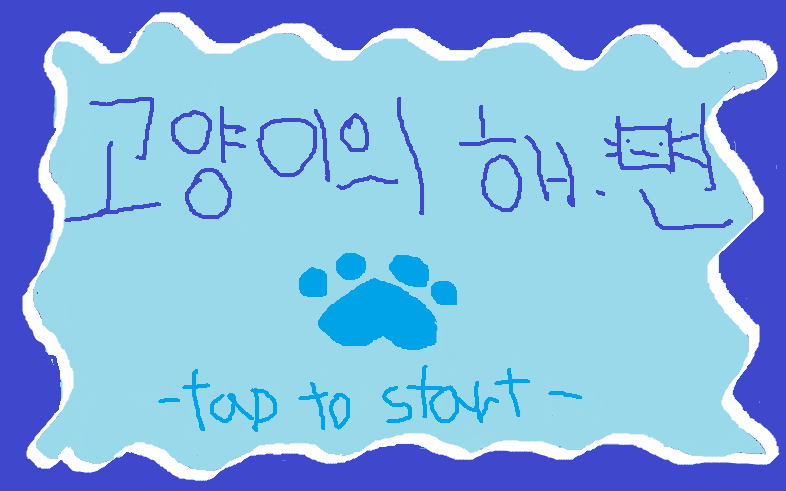 고양이의 해.변
-tap to start-